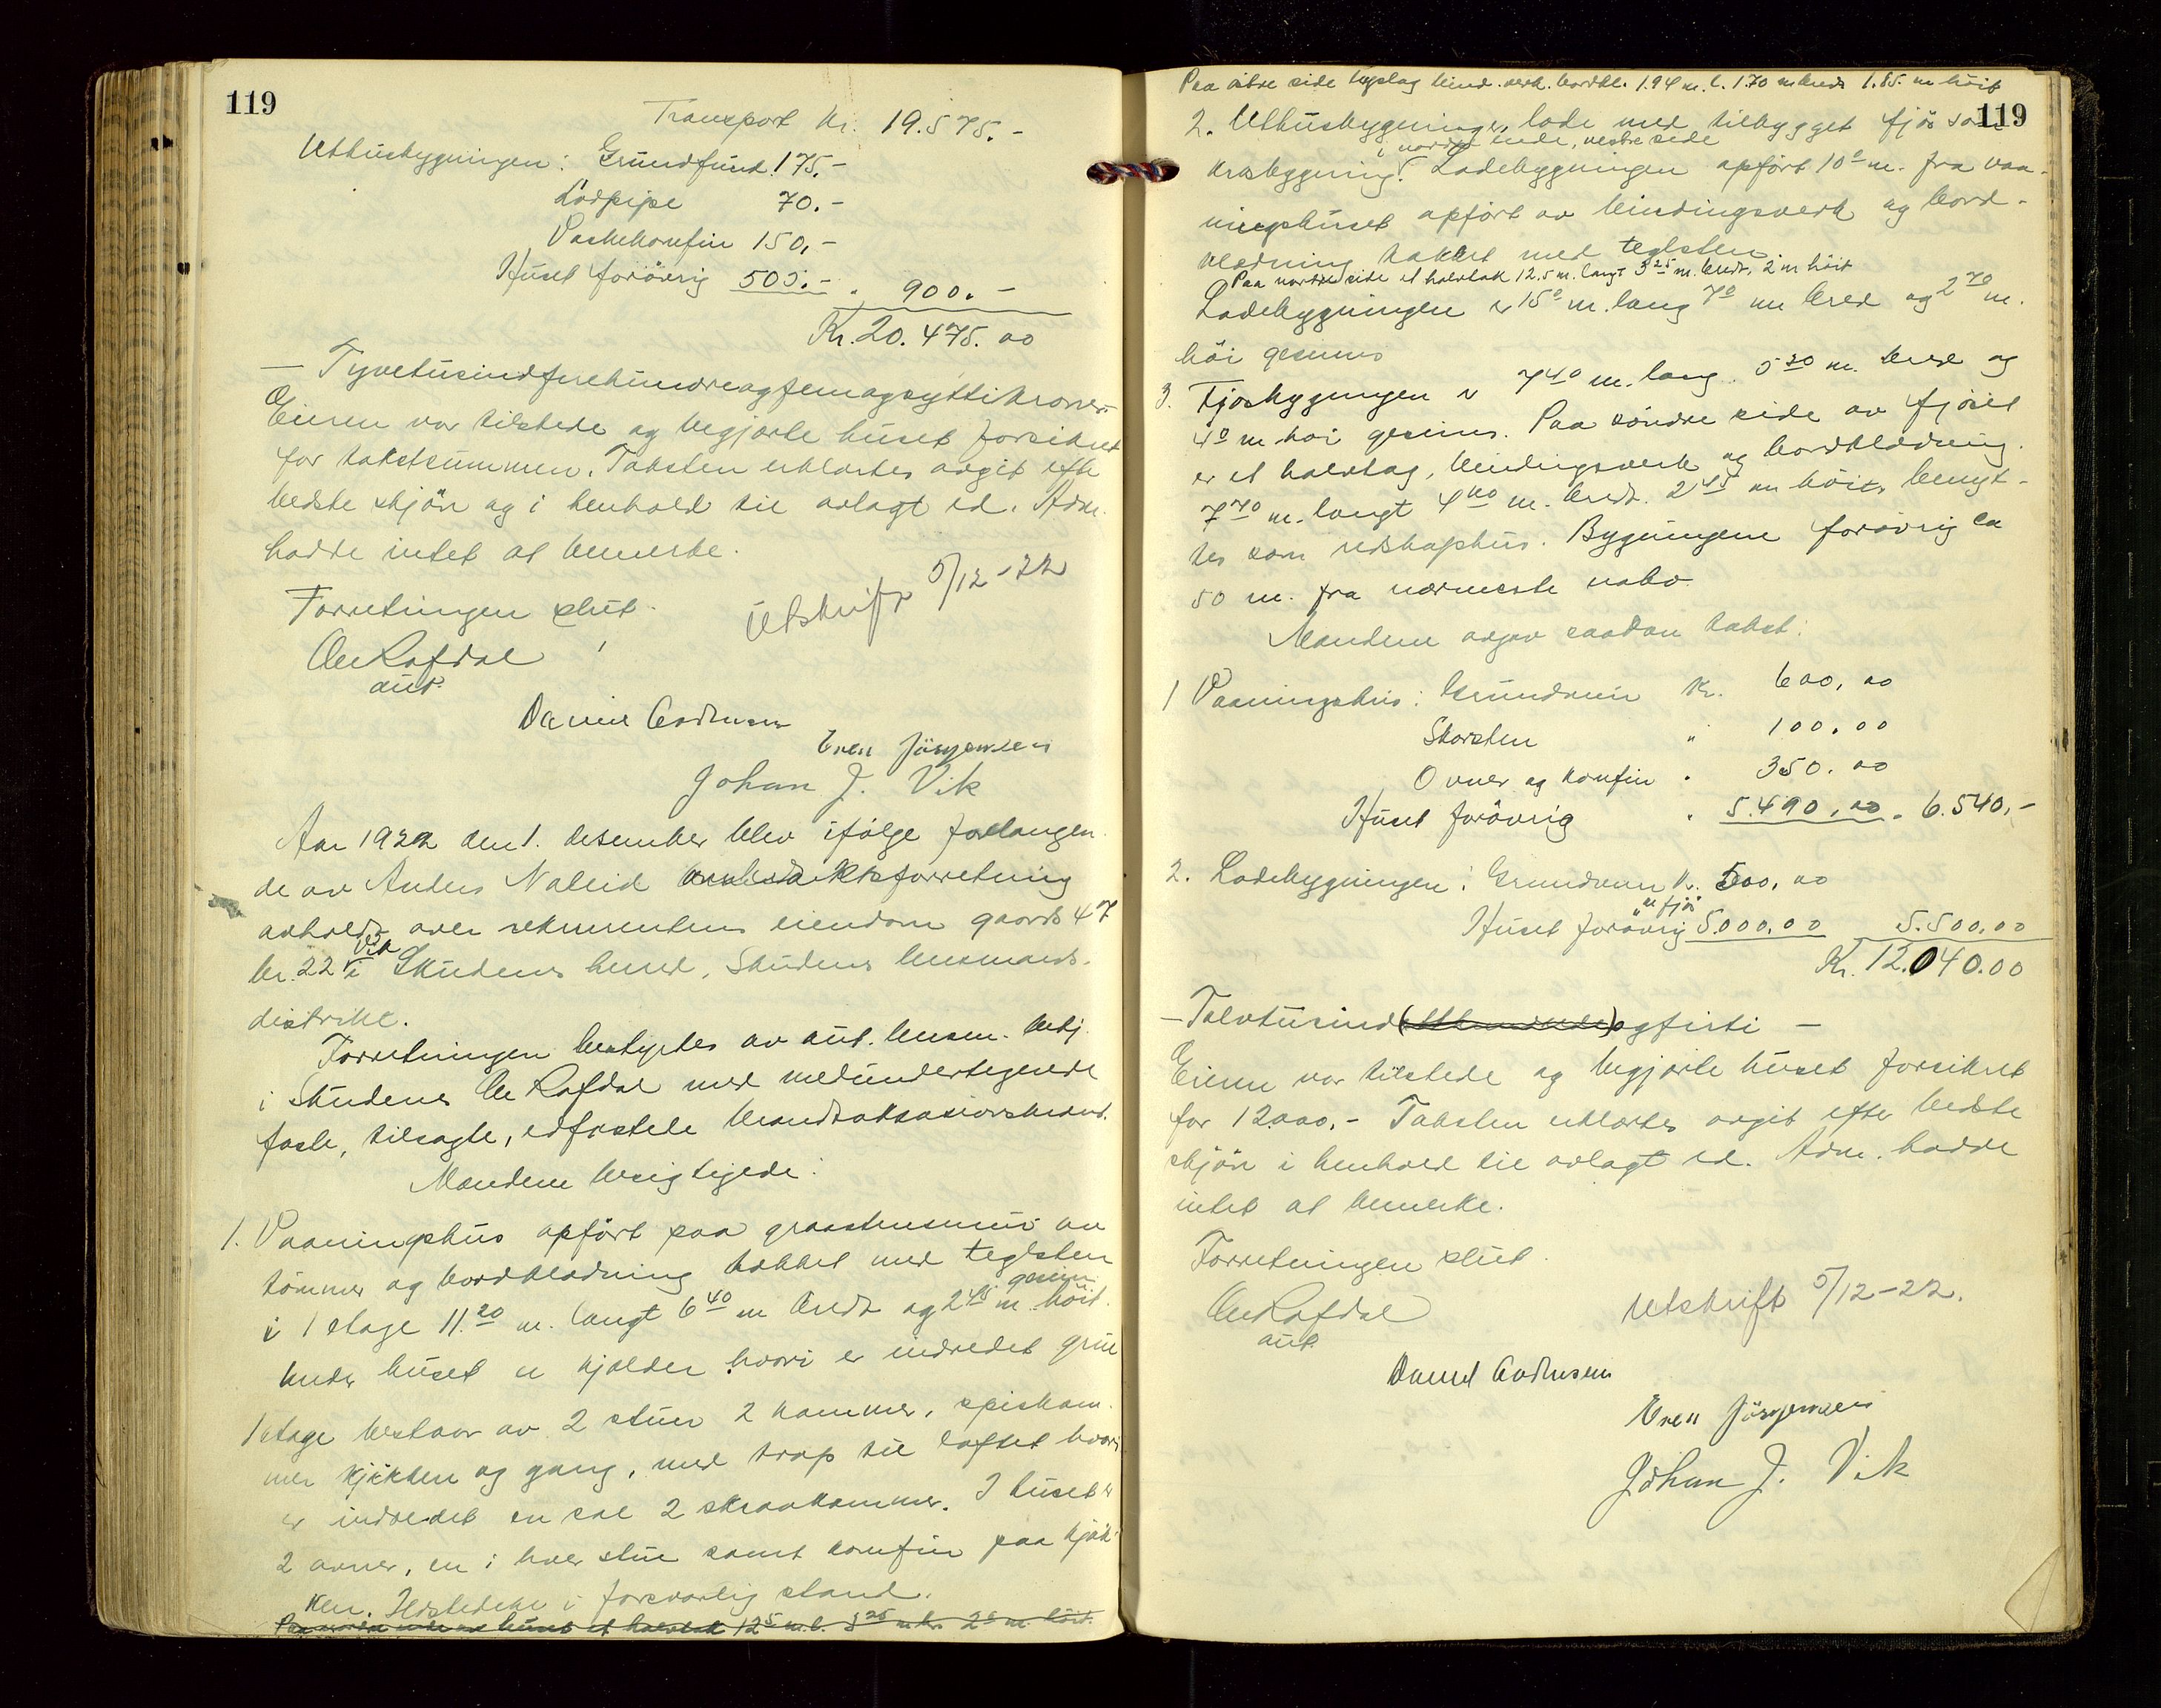 119
Transport Kr. 19.575.-
Uthusbygningen: Grundfund. 175.-
Lodpipe 70.-
Vaskekomfur 150,-
Huset forøvrig 505.- " 900.-
Kr. 20.475.00
- Tyvetusindfirehundreogfemogsyttikroner-
Eieren var tilstede og begjærte huset forsikret
for takstsummen. Taksten erklærtes avgit efter
bedste skjön og i henhold til avlagt ed. Adm.
hadde intet at bemerke.
Forretningen slut.
Utskrift 5/12-22
Ole Rafdal
aut.
Daniel Andreassen
Sven Jörgensen
Johan J. Vik
Aar 1922 den 1. desember blev ifölge forlangen-
de av Anders Naleid branntaktsforretning
avholdt over rekvirentens eiendom gaards 47
br. 22 Vik i Skudenes herred, Skudenes lensmands-
distrikt.
Forretningen bestyrtes av aut. lensm. betj.
i Skudenes Ole Rafdal med medundertegnede
faste, tilsagte, edfæstede brandtaksasionsmænd.
Mændene besigtigede:
1. Vaaningshus opfört paa graastensmur av
tömmer og bordklædning tækket med teglsten
i 1 etage 11.20 m. langt 6 40 m bredt og 2 45 m gesims höit.
Under huset er kjelder hvori er indredet grue
1 etage bestaar av 2 stuer 2 kammer, spiskam-
mer kjökken og gang, med trap til loftet hvori
er indredet en sal 2 skraakammer. I huset er
2 ovner, en i hver stue samt komfur paa kjök-
ken. Ildstedene i forsvarlig stand.
Paa nordre side av huset et halvtak 12 5 m.l. 3 25 m.br. 2 0 m. höit.
119
Paa östre side bislag bind.verk. bordkl. 1.94 m. l. 1.70 m bredt 1.85. m höit
2. Uthusbygninger, lade med tilbygget fjös som
i nordre ende, vestre side
krosbygning. Ladebygningen opfört 10 0 m. fra vaa-
ningshuset opfört av bindingsverk og bord-
klædning tækket med teglsten.
Paa nordre side et halvtak 12.5 m. langt 3 25 m. bredt, 2 m höit
Ladebygningen er 15 0 m. lang 7 0 m bred og 2 70 m.
höi gesims
3. Fjösbygningen er 7 40 m. lang. 5 20 m. bred og
4 0 m. höi gesims. Paa söndre side av fjöset
er et halvtag, bindingsverk og bordklædning.
7 70 m. langt 4 40 m. bredt. 2 45 m höit, benyt-
tes som redskaphus. Bygningene forövrig ca
50 m. fra nærmeste nabo.
Mændene avgav saadan takst:
1 Vaaningshus: Grundmur Kr. 600,00
Skorsten " 100.00
Ovner og komfur " 350.00
Huset forövrig " 5.490,00 " 6.540,-
2. Ladebygningen: Grundmur Kr. 500,00
m fjös
Huset forövrig " 5.000,00 5.500,00
Kr. 12.040.00
- Tolvtusindogfirti -
Eieren var tilstede og begjærte huset forsikret
for 12.000,- Taksten erklærtes avgit efter bedste
skjön i henhold til avlagt ed. Adm. hadde
intet at bemerke.
Forretningen slut.
Ole Rafdal
aut.
Utskrift 5/12-22.
Daniel Andreassen
Sven Jörgensen
Johan J. Vik